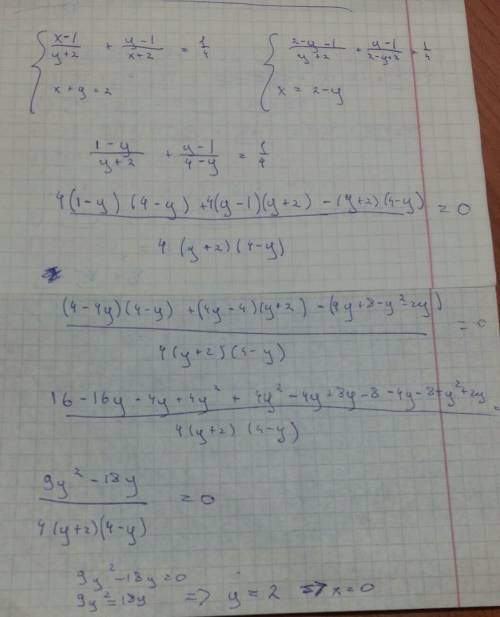 { (x-1)/(y+2) + (y-1)/(x+2) = 1/4
x + y = 2
{ (2-y-1)/(y+2) + (y-1)/(2-y+2) = 1/4
x = 2-y
(1-y)/(y+2) + (y-1)/(4-y) = 1/4
(4(1-y)(4-y) + 4(y-1)(y+2) - (y+2)(4-y))/(4(y+2)(4-y)) = 0
((4-4y)(4-y) + (4y-4)(y+2) - (4y+8-y²-2y))/(4(y+2)(4-y)) = 0
(16-16y-4y+4y²+4y²-4y+8y-8-4y-8+y²+2y)/(4(y+2)(4-y)) =
(9y²-18y)/(4(y+2)(4-y)) = 0
9y²-18y=0
9y²=18y => y=2 => x=0